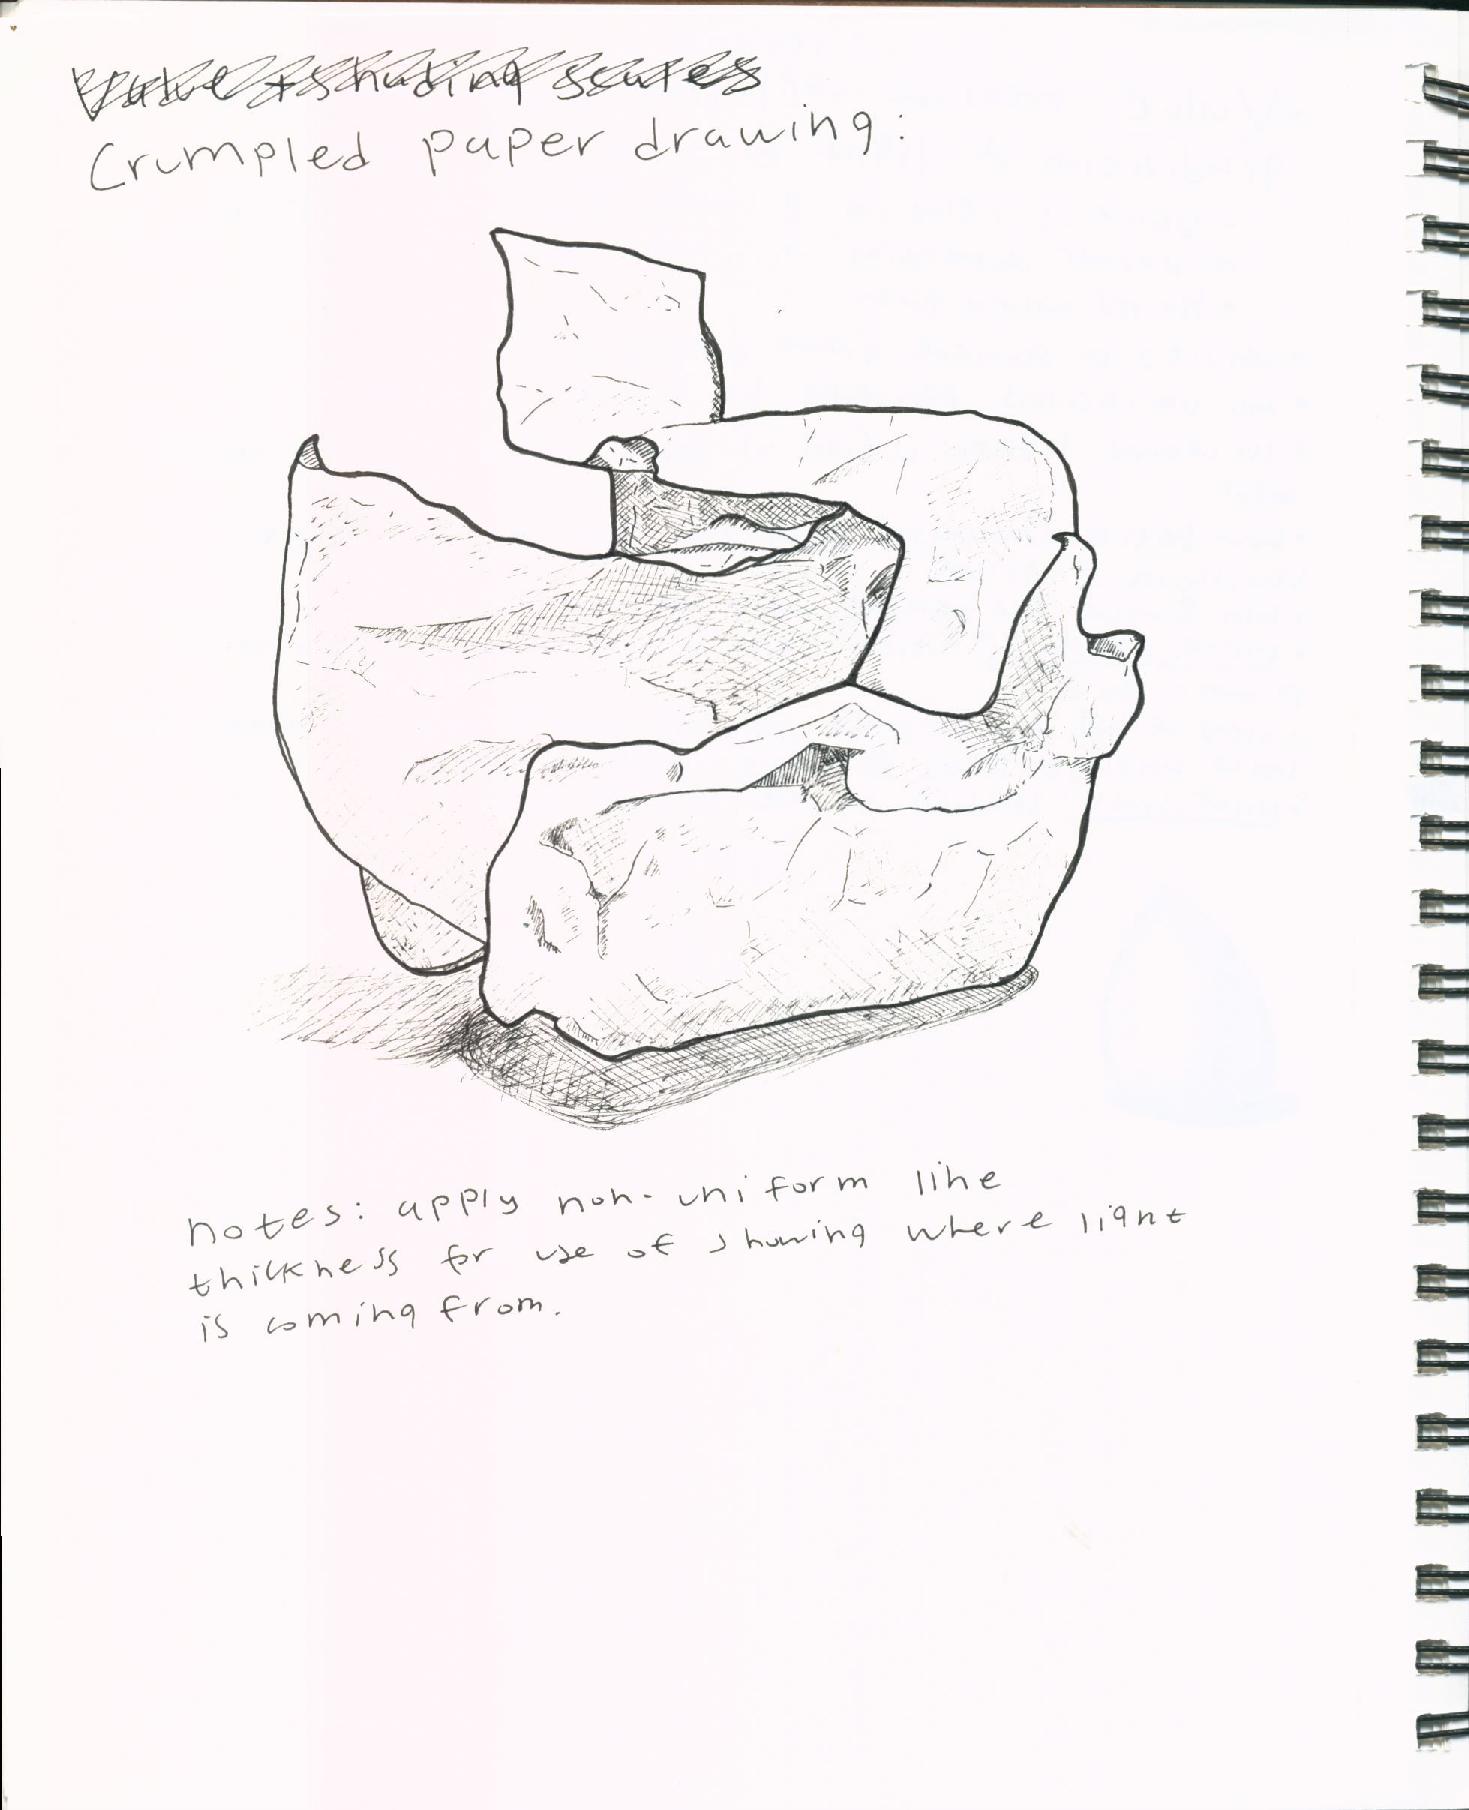 Value + shading scales
Crumpled paper drawing:
notes: apply non-uniform line
thickness for use of showing where light
is coming from.